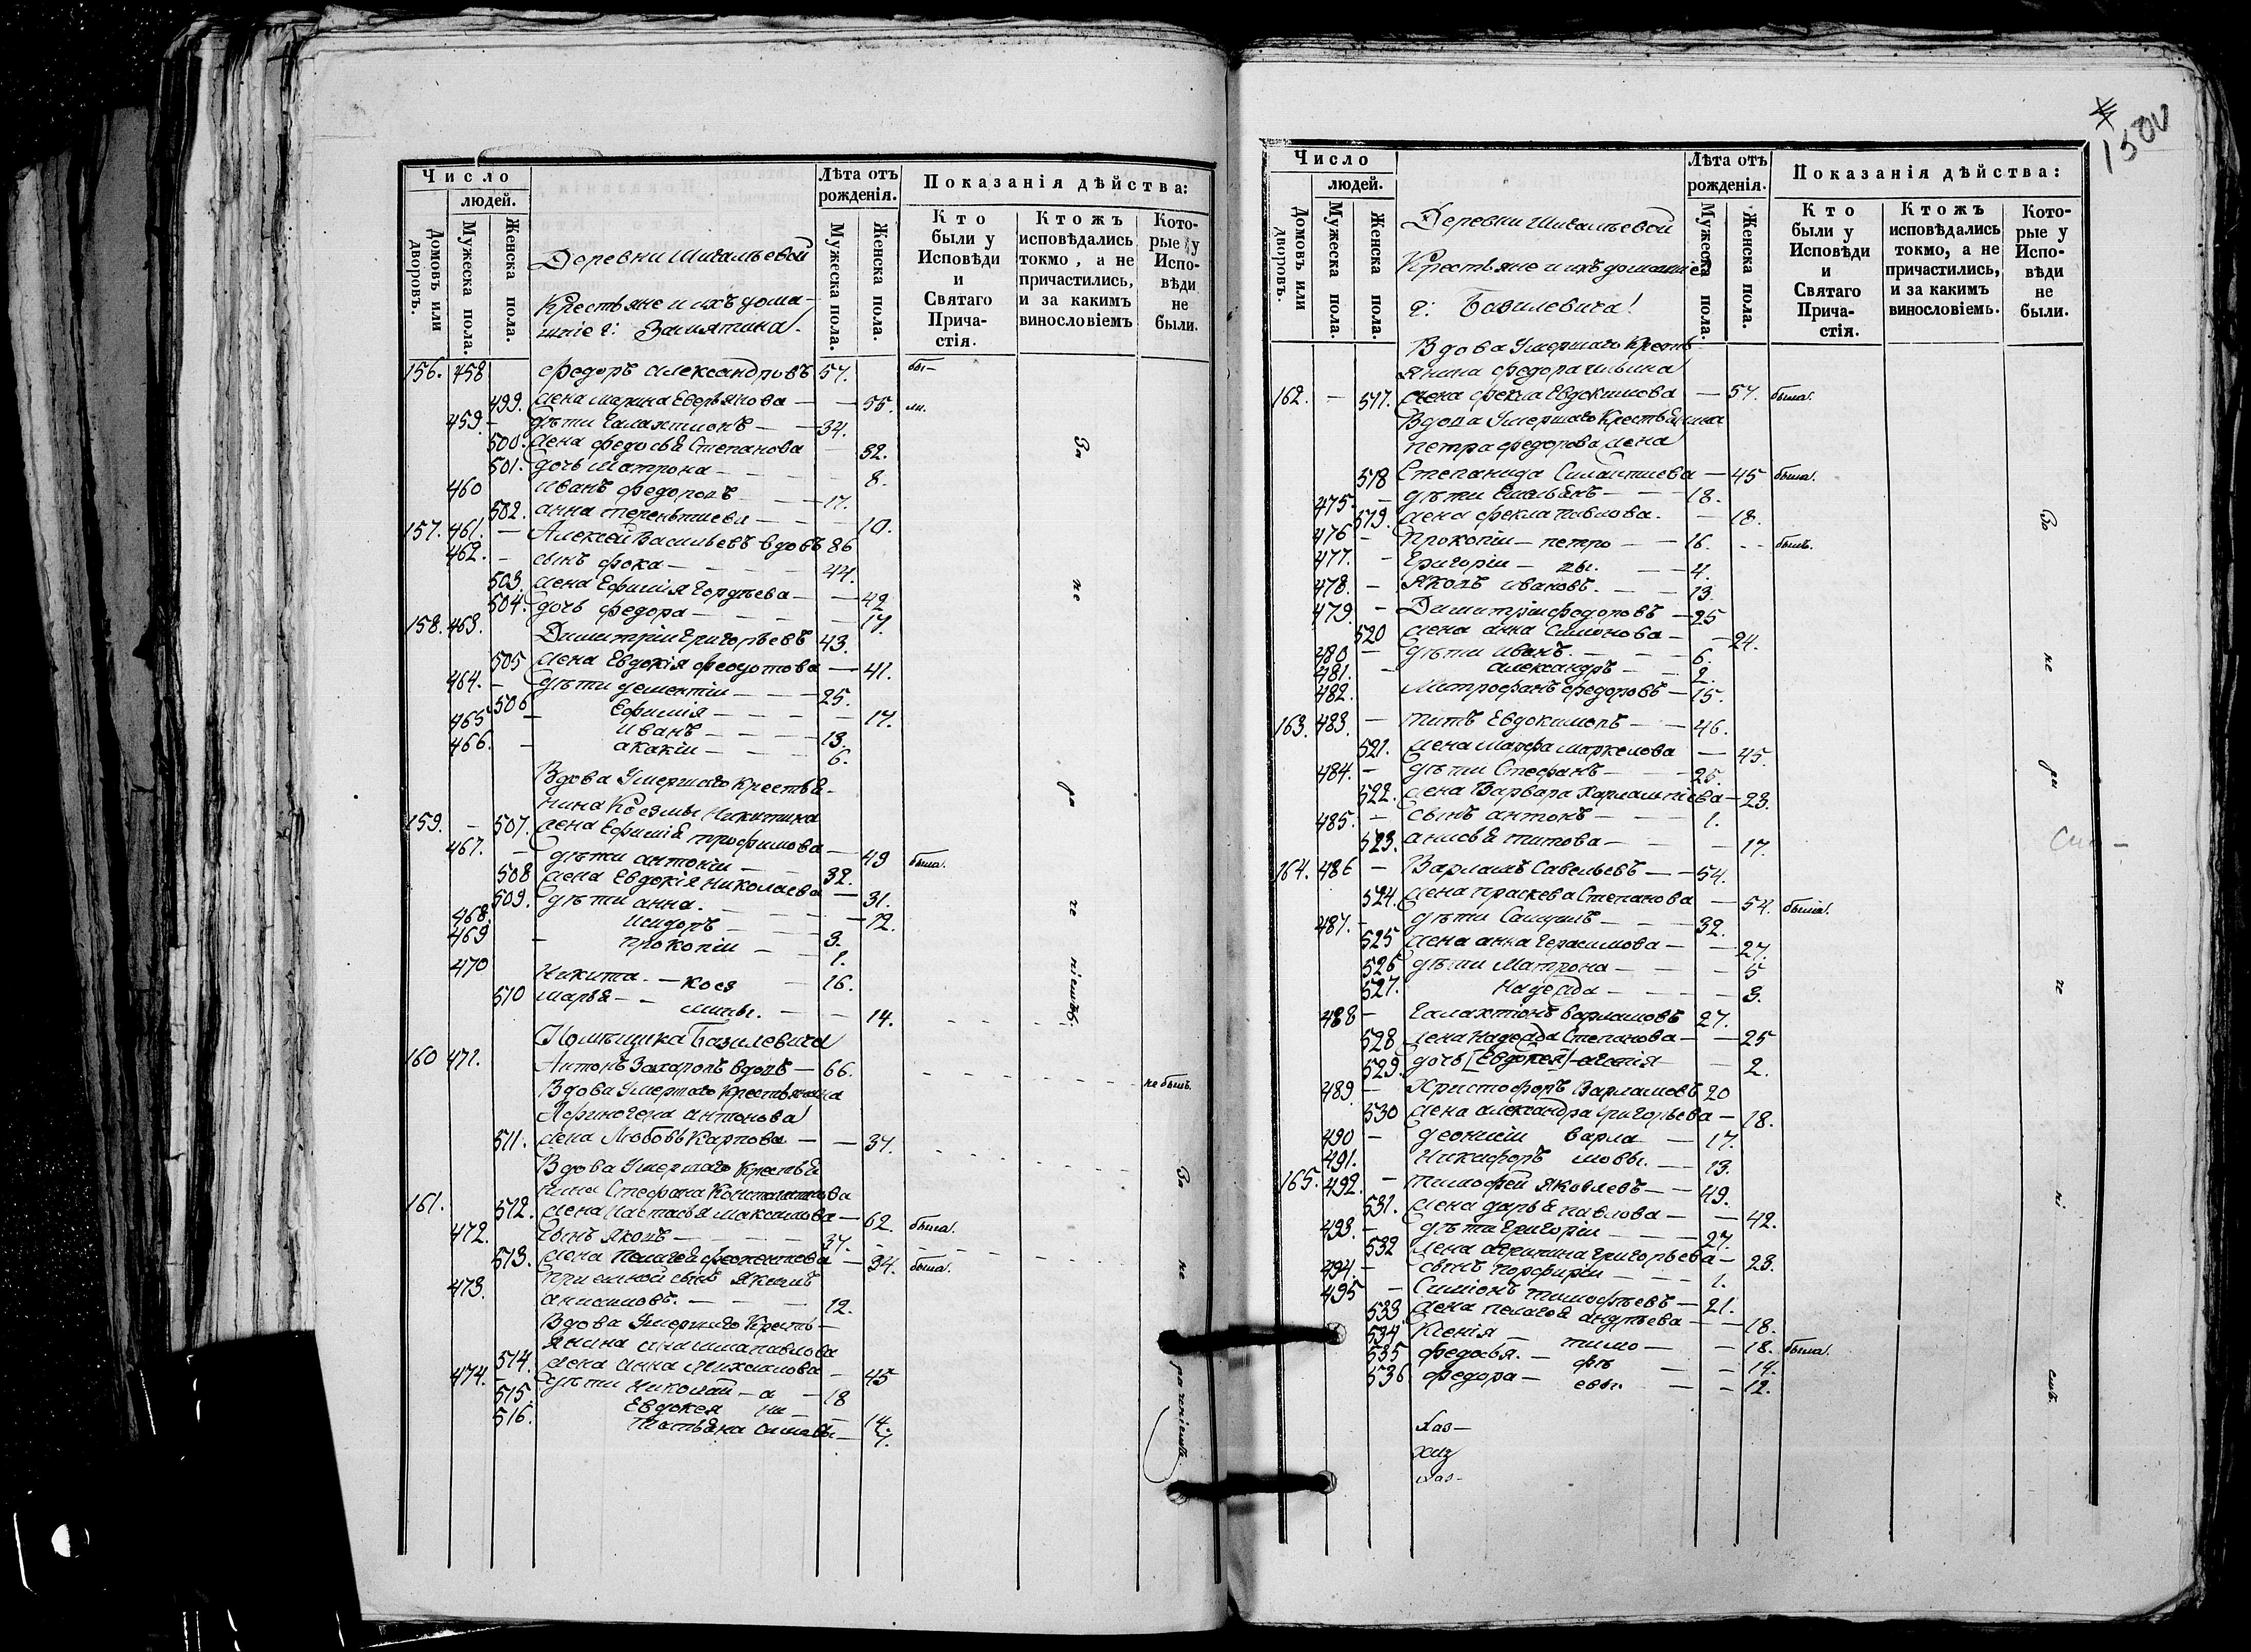 Число
людей.
Домовъ или дворовъ.
Мужеска пола.
Женска пола.
Лѣта отъ рожденія.
Мужеска пола.
Женска пола.
Показанія дѣйства:
Кто были у Исповѣди и Святаго Прича-стія.
Ктожъ исповѣдались токмо, а не причастились, и за какимъ винословіемъ
Кото-рые у Испо-вѣди не были.
Деревни Шигалѣевой
Крестьяне и ихъ дома-
шніе г: Замятина.
156. 458 Федоръ Александровъ 57. бы-
499. жена Марина Аверьянова — — 55. ли.
459. — дѣти Галактіонъ — — 34.
500. жена Федосья Степанова — 32.
501. дочь Матрона — — 8.
460 Иванъ Федоровъ — 17.
502. Анна Терентиева — — 10.
157. 461. — Алексей Васильевъ вдовъ 86
462. — сынъ Фока — — 44.
503. жена Ефимія Гордѣева — — 42
504. дочь Федора — — 17.
158. 463. Димитрій Григорьевъ 43.
505 жена Евдокія Федотова — 41.
464. — дѣти Дементіи — — 25.
506 Ефимія — — — 17.
465 — Иванъ — — 13.
466. — Акакіи — — 6.
Вдова Умершаго Крестья-
нина Козьмы Никитина
159. — 507. жена Ефимія Трофимова — 49 была.
467. — дѣти Антоніи — — 32.
508 жена Евдокія Николаева — 31.
509. дѣти Анна. — — 12.
468. Исидоръ — — 3.
469 — Прокопіи — 1.
470 Никита. — Коз — 16.
510 Марья — — мины. — — 14.
Помѣщика Базилевича
160 471. Антонъ Захаровъ вдовъ — 66. не былъ.
Вдова Умершаго Крестьянина
Афиногена Антонова
511. жена Любовь Карпова — — 37.
Вдова Умершаго Крестья
нина Стефана Константинова
161. 512. жена Настасья Максимова — 62 была.
472. Сынъ Яковъ — — 37.
513. жена Пелагея — 34. была.
473. Приемной сынъ Якимъ
Анисимовъ. — — 12.
Вдова Умершаго Кресть —
янина Павлова
514. жена Анна Михаилова — 45
474. — дѣти Николай — 18
515. Евдокея — 14.
516. Татьяна — 7.
За не ра че ніемъ.
За не раченіемъ.
150
Число
людей.
Домовъ или дворовъ.
Мужеска пола.
Женска пола.
Лѣта отъ рожденія.
Мужеска пола.
Женска пола.
Показанія дѣйства:
Кто были у Исповѣди и Святаго Прича-стія.
Ктожъ исповѣдались токмо, а не причастились, и за какимъ винословіемь.
Кото-рые у Испо-вѣди не были.
Деревни Шигалѣевой
Крестьяне и ихъ домашніе
г: Базилевича!
Вдова Умершаго Кресть-
янина Федора Ильина
162. — 517. жена Фекла Евдокимова — 57. была.
Вдова Умершаго Крестьянина
Петра Федорова жена
518 Степанида Силантиева — 45 была.
475. — дѣти Емельянъ — — 18.
519. жена Фекла Павлова. — 18.
476 — Прокопіи — Петро — 16. — — былъ.
477. — Григоріи — вы. — 4.
478. — Яковъ Ивановъ. — — 13.
479. — Димитріи Федоровъ — 25
520 жена Анна Симонова — — 24.
480 — дѣти Иванъ. — — 6.
481. — Александръ — — 2.
482. Митрофанъ Федоровъ — 15.
163. 483. — Титъ Евдокимовъ — — 46.
521. жена Марфа Маркелова — 45.
484. — дѣти Стефанъ — — 25.
522. жена Варвара Харлампіева — 23.
485. — Сынъ Антонъ — — 1.
523. Анисья Титова — — 17.
164. 486 — Варламъ Савельевъ — — 54.
524. жена Праскева Степанова — 54. была.
487. — дѣти Самуилъ — — 32.
525 жена Анна Герасимова — — 27.
526 дѣти Матрона — — 5
527. Надежда — — 3.
488 — Галактіонъ Варламовъ 27.
528 жена Надежда Степанова — — 25
529. дочь [Евдокея] — 2.
489. — Христофоръ Варламовъ 20
530 жена Александра Григорьева — 18.
490 — Деонисіи Варла — 17.
491. Никифоръ мовы. — 13.
165. 492. — Тимофей Яковлевъ — — 49.
531. жена Дарья Павлова — — 42.
493. — дѣти Григоріи — — 27.
532 жена Агрипина Григорьева — 23.
494. — сынъ Порфиріи — — 1.
495 — Симіонъ Тимофѣевъ — 21.
533 жена Пелагея Андрѣева — — 18.
534 Ксенія — Тимо — — 18. была.
535 Федосья. — фѣ — — 14.
536 Федора — евы. — — 12.
За не ра че ні емъ.